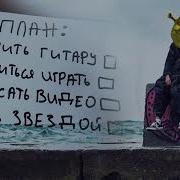 ПЛАН:
ИТЬ ГИТАРУ
ИТЬСЯ ИГРАТЬ
САТЬ ВИДЕО
ЗВЕЗДОЙ